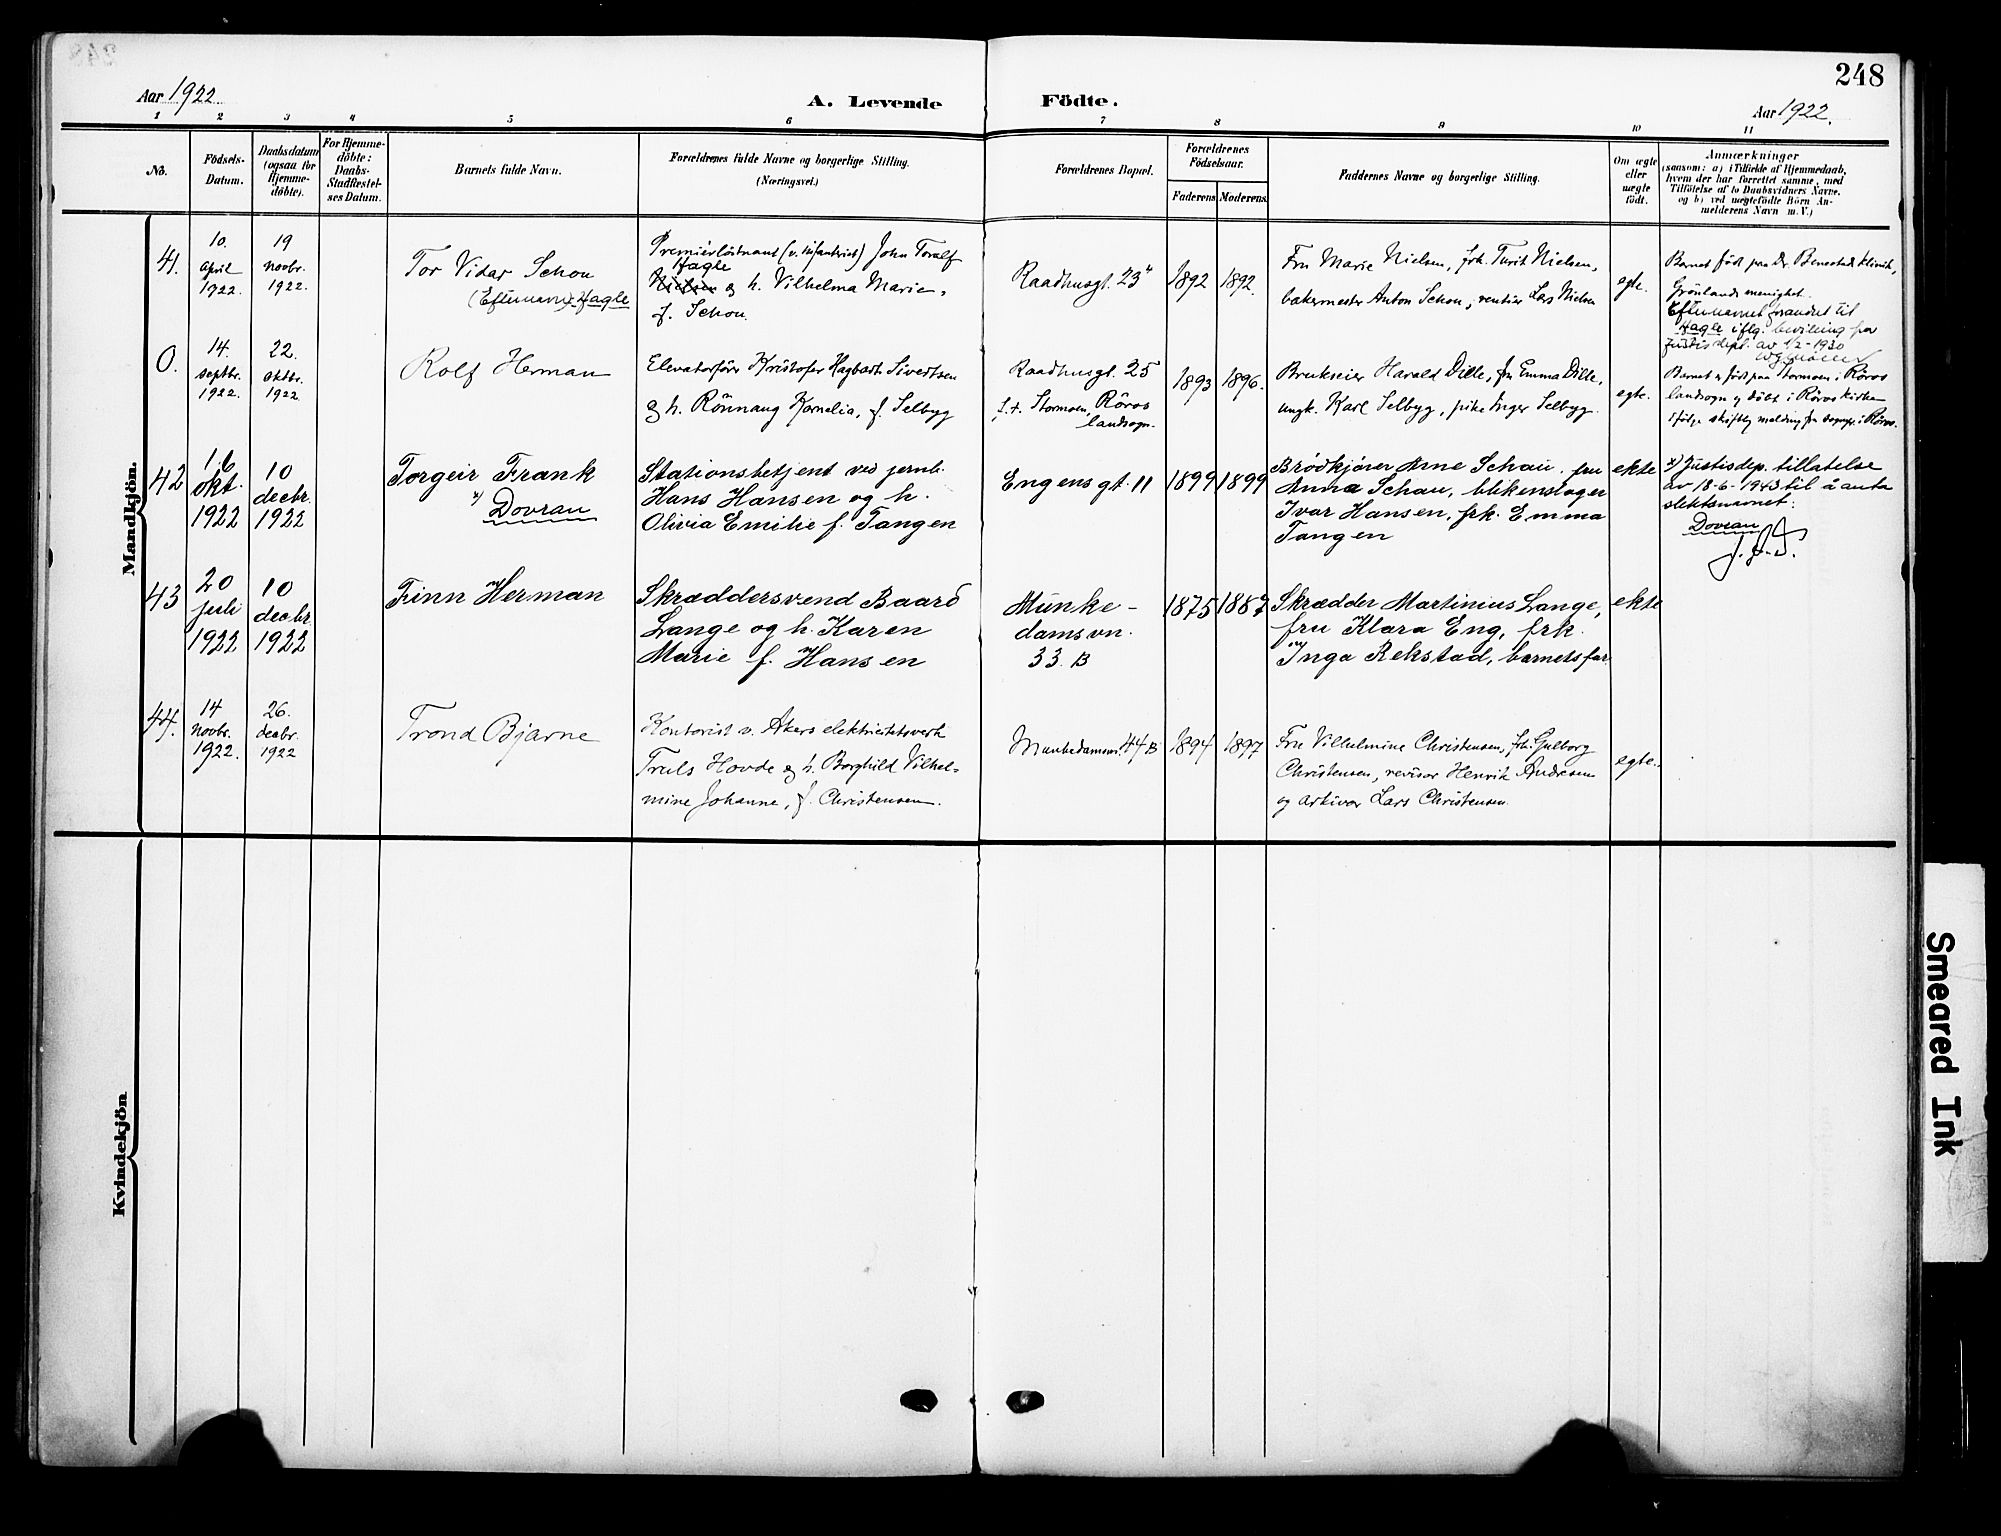 248
Aar 1922.
A. Levende Födte.
Aar 1922.
1 2 3 4 5 6 7 8 9 10 11
No.
Födsels-
Datum.
Daabsdatum
(ogsaa for
Hjemme-
döbte).
For Hjemme-
döbte:
Daabs-
Stadfæstel-
ses Datum.
Barnets fulde Navn.
Forældrenes fulde Navne og borgerlige Stilling.
(Næringsvei.)
Forældrenes Bopæl.
Forældrenes
Födselsaar.
Faderens Moderens
Faddernes Navne og borgerlige Stilling.
Om ægte
eller
uægte
födt.
Anmærkninger
(saasom: a) i Tilfælde af Hjemmedaab,
hvem der har forrettet samme, med
Tilföielse af to Daabsvidners Navne.
og b) ved uægtefödte Börn An-
melderens Navn m. V.)
Mandkjön.
41.
10.
april
1922.
19
novbr.
1922.
Tor Vidar Schou
(Efternavn): Hagle
Premierløitnant (v. infanteriet) John Toralf
Hagle
Nielsen og h. Vilhelma Marie,
f. Schou.
Raadhusgt. 23"
1892
1892.
Fru Marie Nielsen, frk. Turit Nielsen,
bakermester Anton Schou, rentier Lars Nielsen
egte.
Barnet født paa Dr. Benestads klinik,
Grönlands menighet.
Efternavnet forandret til
Hagle iflg. bevilling fra
Justisdept. av 1/2-1930
0.
14.
septbr.
1922.
22.
oktbr.
1922
Rolf Herman
Elevatorfører Kristofer Hagbarth Sivertsen
og h. Rönnaug Kornelia, f. Selbyg
Raadhusgt. 25
f. t. Stormoen, Röros
landsogn.
1893
1896.
Brukseier Harald Dille, fru Emma Dille,
ungk. Karl Selbyg, pike Inger Selbyg.
egte.
Barnet er født paa Stormoen i Röros
landsogn og döbt i Röros kirke
ifölge skriftlig melding fra sognepr. i Röros.
42
16
okt.
1922
10
decbr.
1922
Torgeir Frank
x) Dovran
Stationsbetjent ved jernb.
Hans Hansen og h.
Olivia Emilie f. Tangen
Engensgt. 11
1899
1899
Brödkjörer Arne Schau, fru
Anna Schau, blikenslager
Ivar Hansen, frk. Emma
Tangen
ekte
x) Justisdep. tillatelse
av 18-6-1943 til å anta
slektsnavnet:
Dovran
43
20
juli
1922
10
decbr.
1922
Finn Herman
Skræddersvend Baard
Lange og h. Karen
Marie f. Hansen
Munke-
damsvn.
33. B
1875
1887
Skrædder Martinius Lange,
fru Klara Eng, frk.
Inga Rekstad, barnets far
ekte
44.
14
novbr.
1922.
26.
decbr.
1922
Trond Bjarne
Kontorist v. Akers elektricitetsverk
Truls Hovde og h. Borghild Vilhel-
mine Johanne, f. Christensen.
Munkedamsvn. 44 B
1894
1897
Fru Vilhelmine Christensen, frk. Gulborg
Christensen, revisor Henrik Andresen
og arkivar Lars Christensen.
egte.
Kvindekjön
Smeared Ink